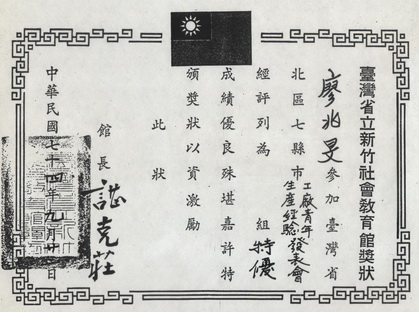 臺灣省立新竹社會教育館獎狀
廖兆旻參加臺灣省
北區七縣市工廠青年生產經驗發表會
經評列為 組特優
成績優良殊堪嘉許特
頒獎狀以資激勵
此狀
館長 諶克莊
中華民國七十四年九月廿日